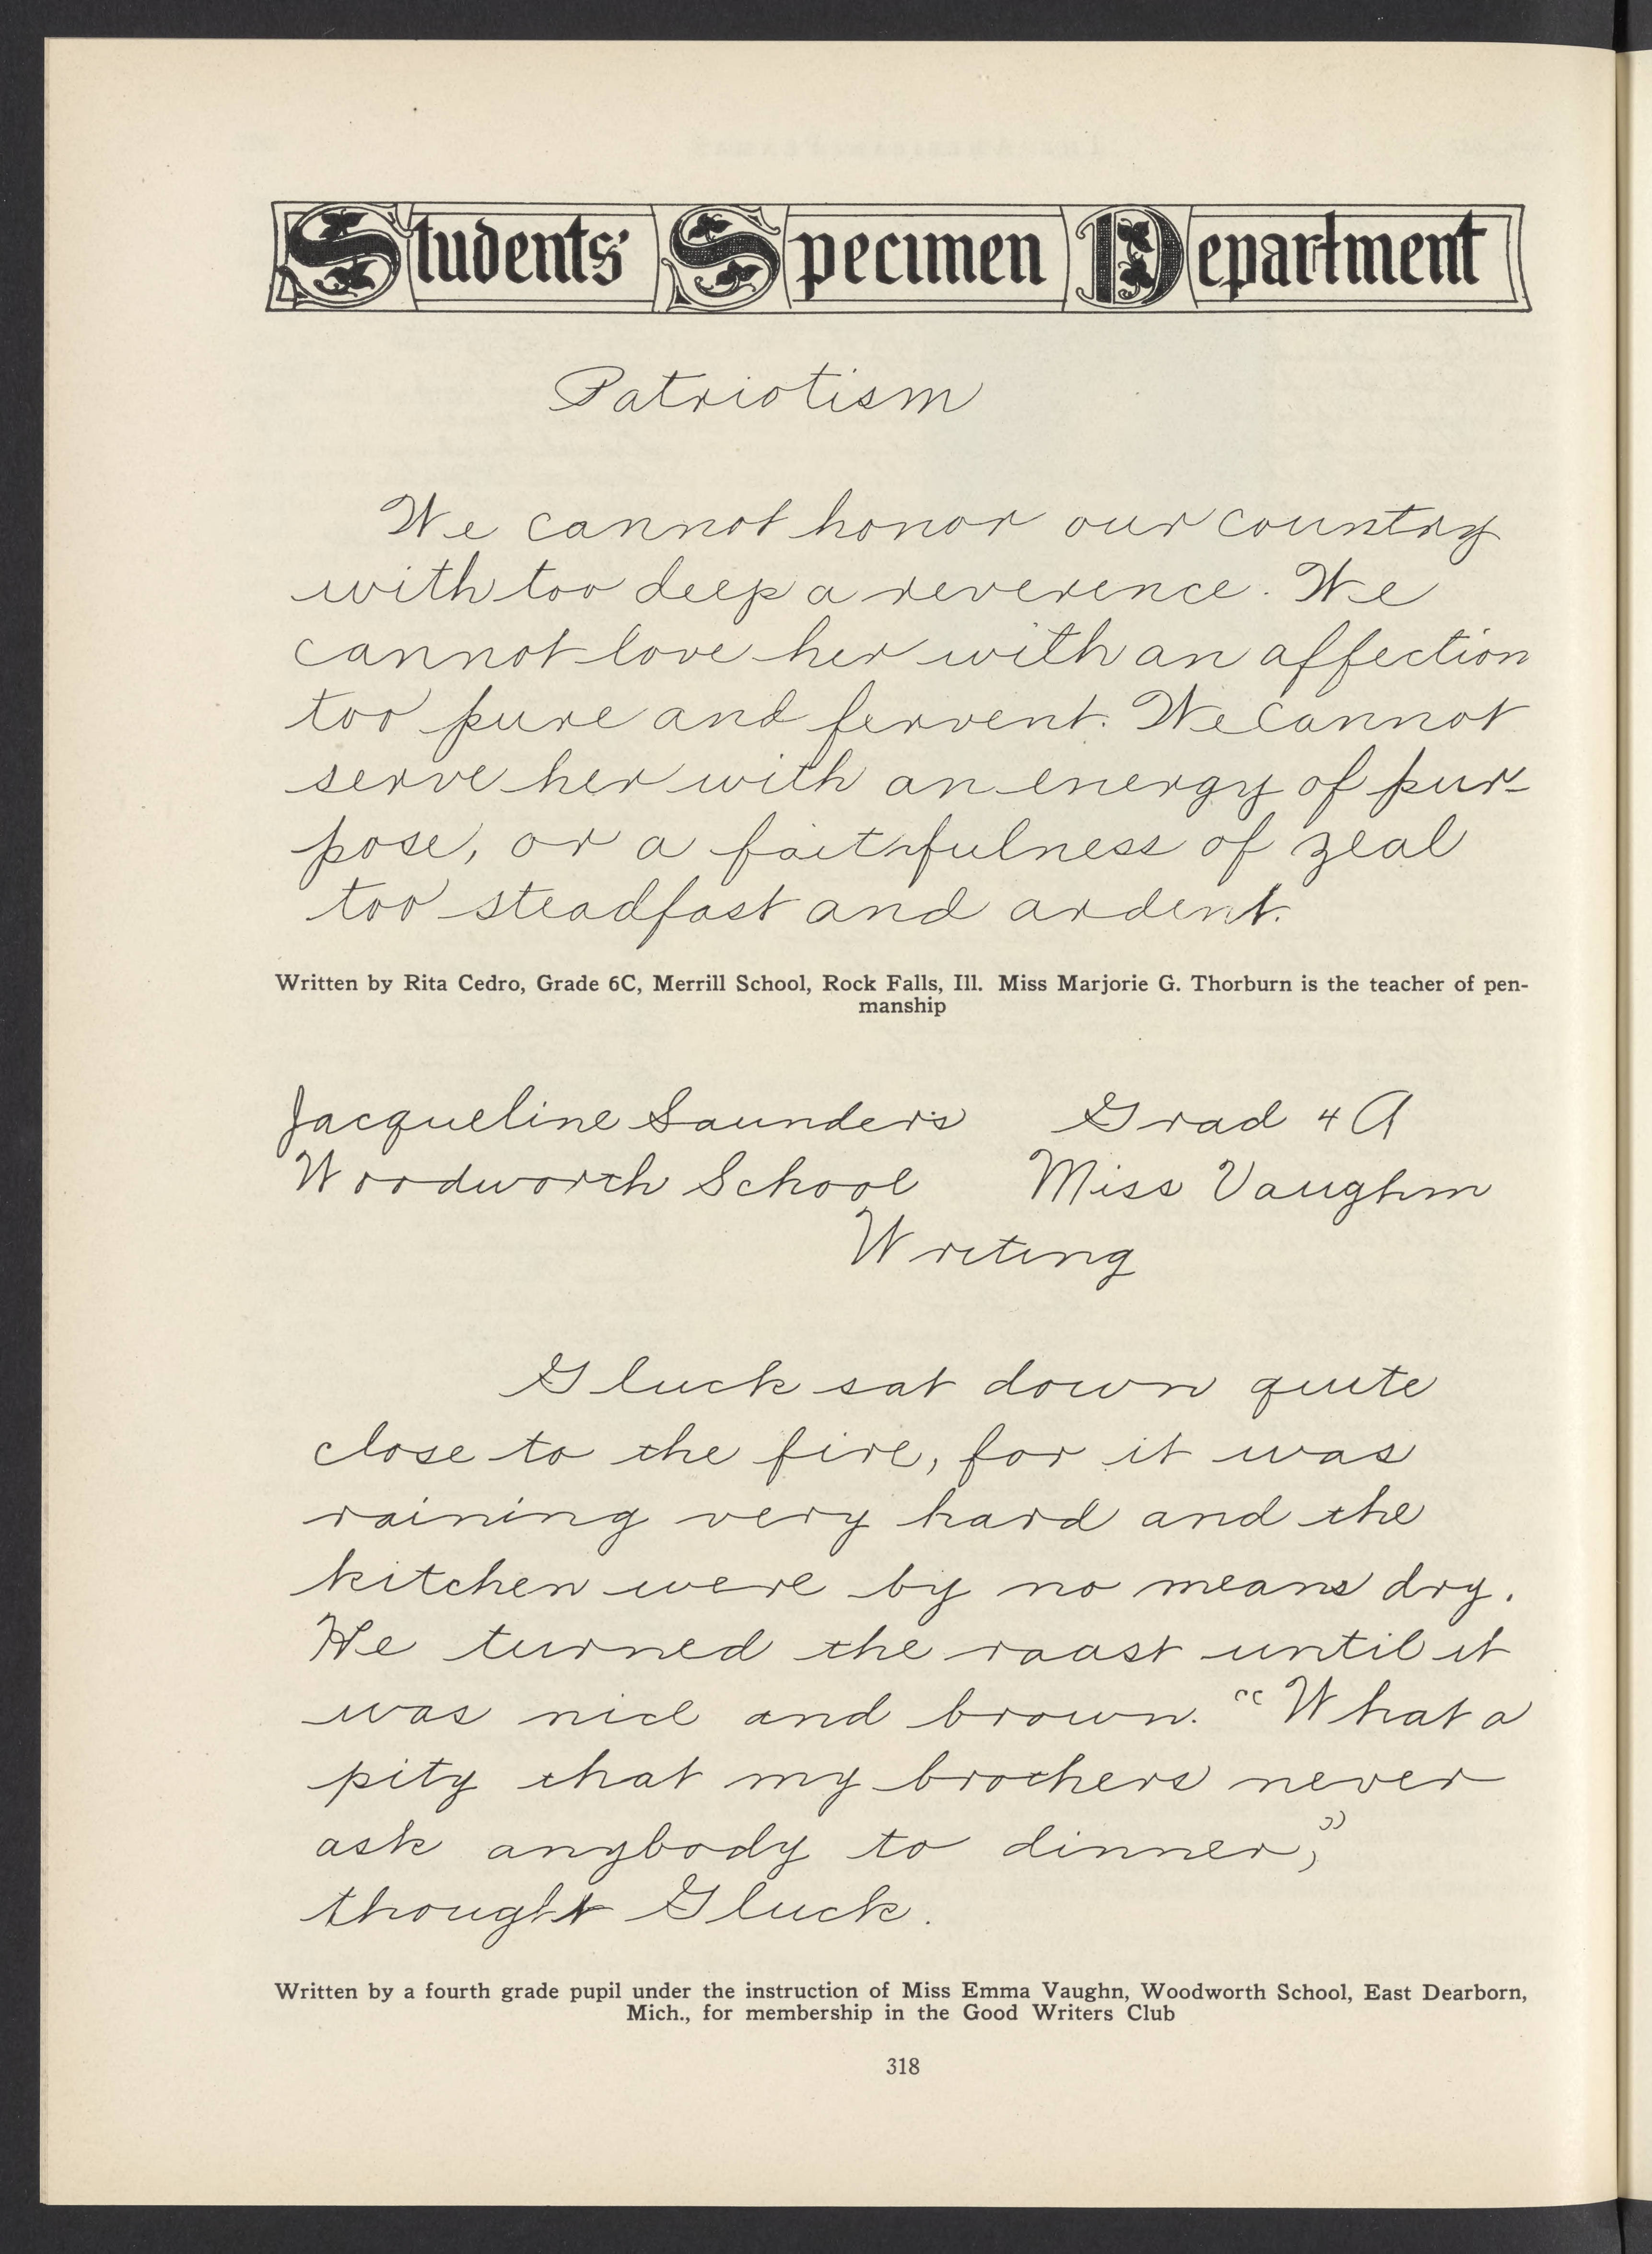 Students' Specimen Department
Patriotism
We cannot honor our country
with too deep a reverence. We
cannot love her with an affection
too pure and fervent. We cannot
serve her with an energy of pur-
pose, or a faithfulness of zeal
too steadfast and ardent.
Written by Rita Cedro, Grade 6C, Merrill School, Rock Falls, Ill. Miss Marjorie G. Thorburn is the teacher of pen-
manship
Jacqueline Saunders Grad 4 A
Woodworth School Miss Vaughm
Writing
Gluck sat down quite
close to the fire, for it was
raining very hard and the
kitchen were by no means dry.
He turned the roast until it
was nice and brown. "What a
pity that my brothers never
ask anybody to dinner,"
thought Gluck.
Written by a fourth grade pupil under the instruction of Miss Emma Vaughn, Woodworth School, East Dearborn,
Mich., for membership in the Good Writers Club
318